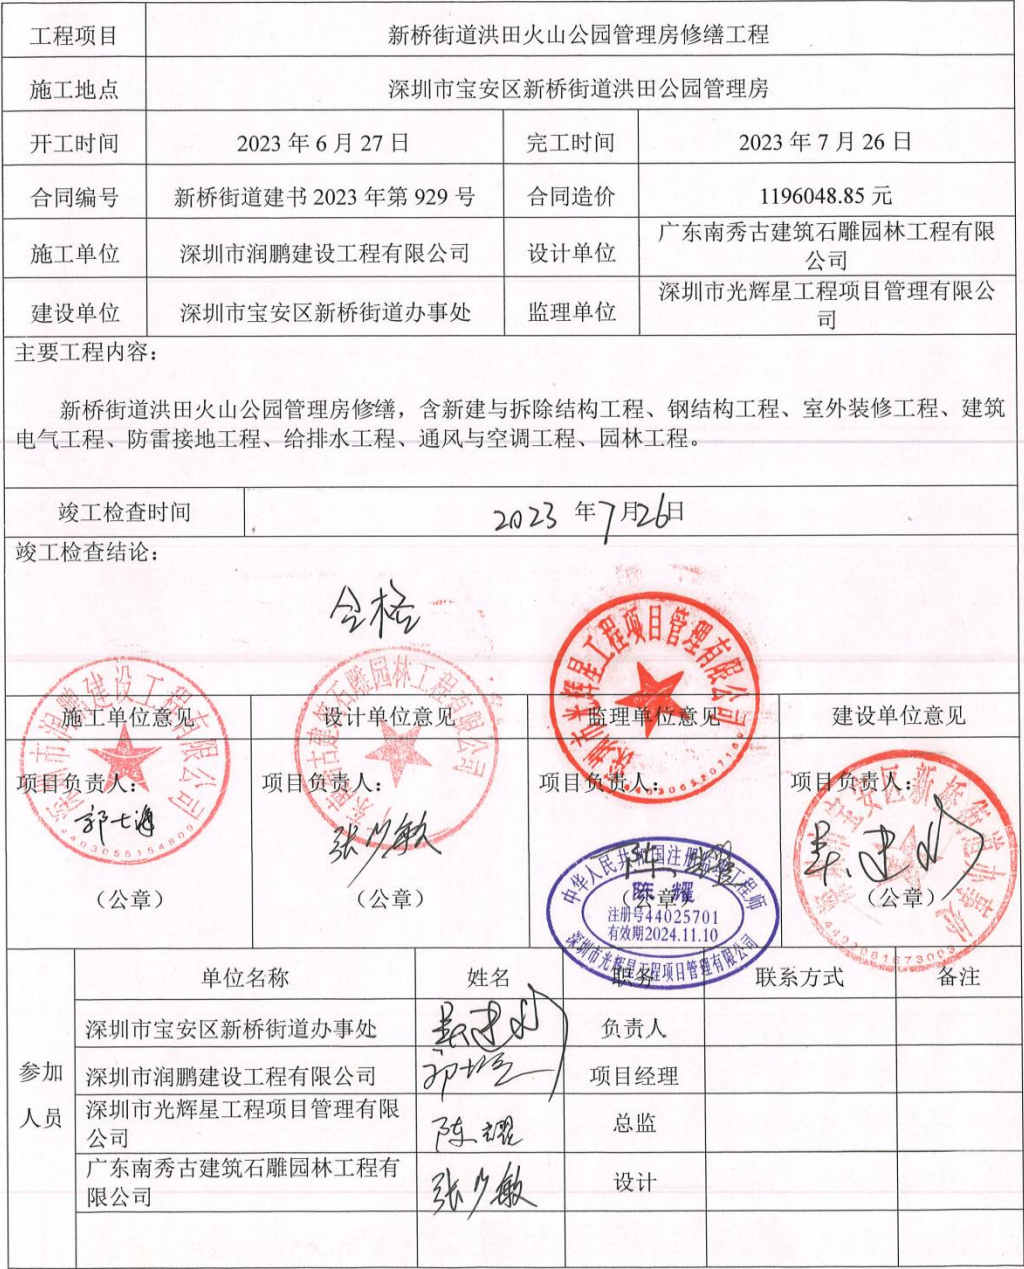 工程项目 新桥街道洪田火山公园管理房修缮工程
施工地点 深圳市宝安区新桥街道洪田公园管理房
开工时间 2023 年 6 月 27 日 完工时间 2023 年 7 月 26 日
合同编号 新桥街道建书 2023 年第 929 号 合同造价 1196048.85 元
施工单位 深圳市润鹏建设工程有限公司 设计单位 广东南秀古建筑石雕园林工程有限
公司
建设单位 深圳市宝安区新桥街道办事处 监理单位 深圳市光辉星工程项目管理有限公
司
主要工程内容：
新桥街道洪田火山公园管理房修缮，含新建与拆除结构工程、钢结构工程、室外装修工程、建筑
电气工程、防雷接地工程、给排水工程、通风与空调工程、园林工程。
竣工检查时间 2023 年 7 月 26 日
竣工检查结论：
合格
施工单位意见 设计单位意见 监理单位意见 建设单位意见
项目负责人： 项目负责人： 项目负责人： 项目负责人：
张少敏
（公章） （公章） （公章） （公章）
深圳市润鹏建设工程有限公司
4403055154809
深圳市光辉星工程项目管理有限公司
中华人民共和国注册监理工程师
陈耀
注册号44025701
有效期2024.11.10
深圳市光辉星工程项目管理有限公司
参加
人员
单位名称 姓名 职务 联系方式 备注
深圳市宝安区新桥街道办事处 负责人
深圳市润鹏建设工程有限公司 项目经理
深圳市光辉星工程项目管理有限
公司 陈耀 总监
广东南秀古建筑石雕园林工程有
限公司 张少敏 设计